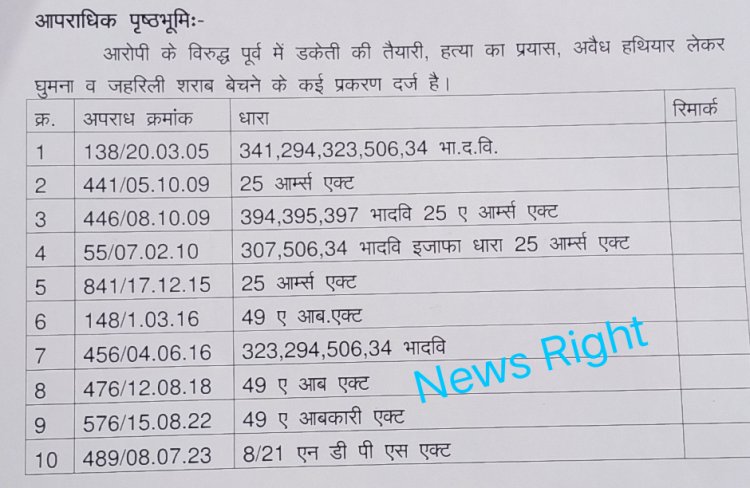 आपराधिक पृष्ठभूमिः-
आरोपी के विरुद्ध पूर्व में डकेती की तैयारी, हत्या का प्रयास, अवैध हथियार लेकर
घुमना व जहरिली शराब बेचने के कई प्रकरण दर्ज है।
क्र. अपराध क्रमांक धारा रिमार्क
1 138/20.03.05 341,294,323,506,34 भा.द.वि.
2 441/05.10.09 25 आर्म्स एक्ट
3 446/08.10.09 394,395,397 भादवि 25 ए आर्म्स एक्ट
4 55/07.02.10 307,506,34 भादवि इजाफा धारा 25 आर्म्स एक्ट
5 841/17.12.15 25 आर्म्स एक्ट
6 148/1.03.16 49 ए आब.एक्ट
7 456/04.06.16 323,294,506,34 भादवि
8 476/12.08.18 49 ए आब एक्ट
9 576/15.08.22 49 ए आबकारी एक्ट
10 489/08.07.23 8/21 एन डी पी एस एक्ट
News Right